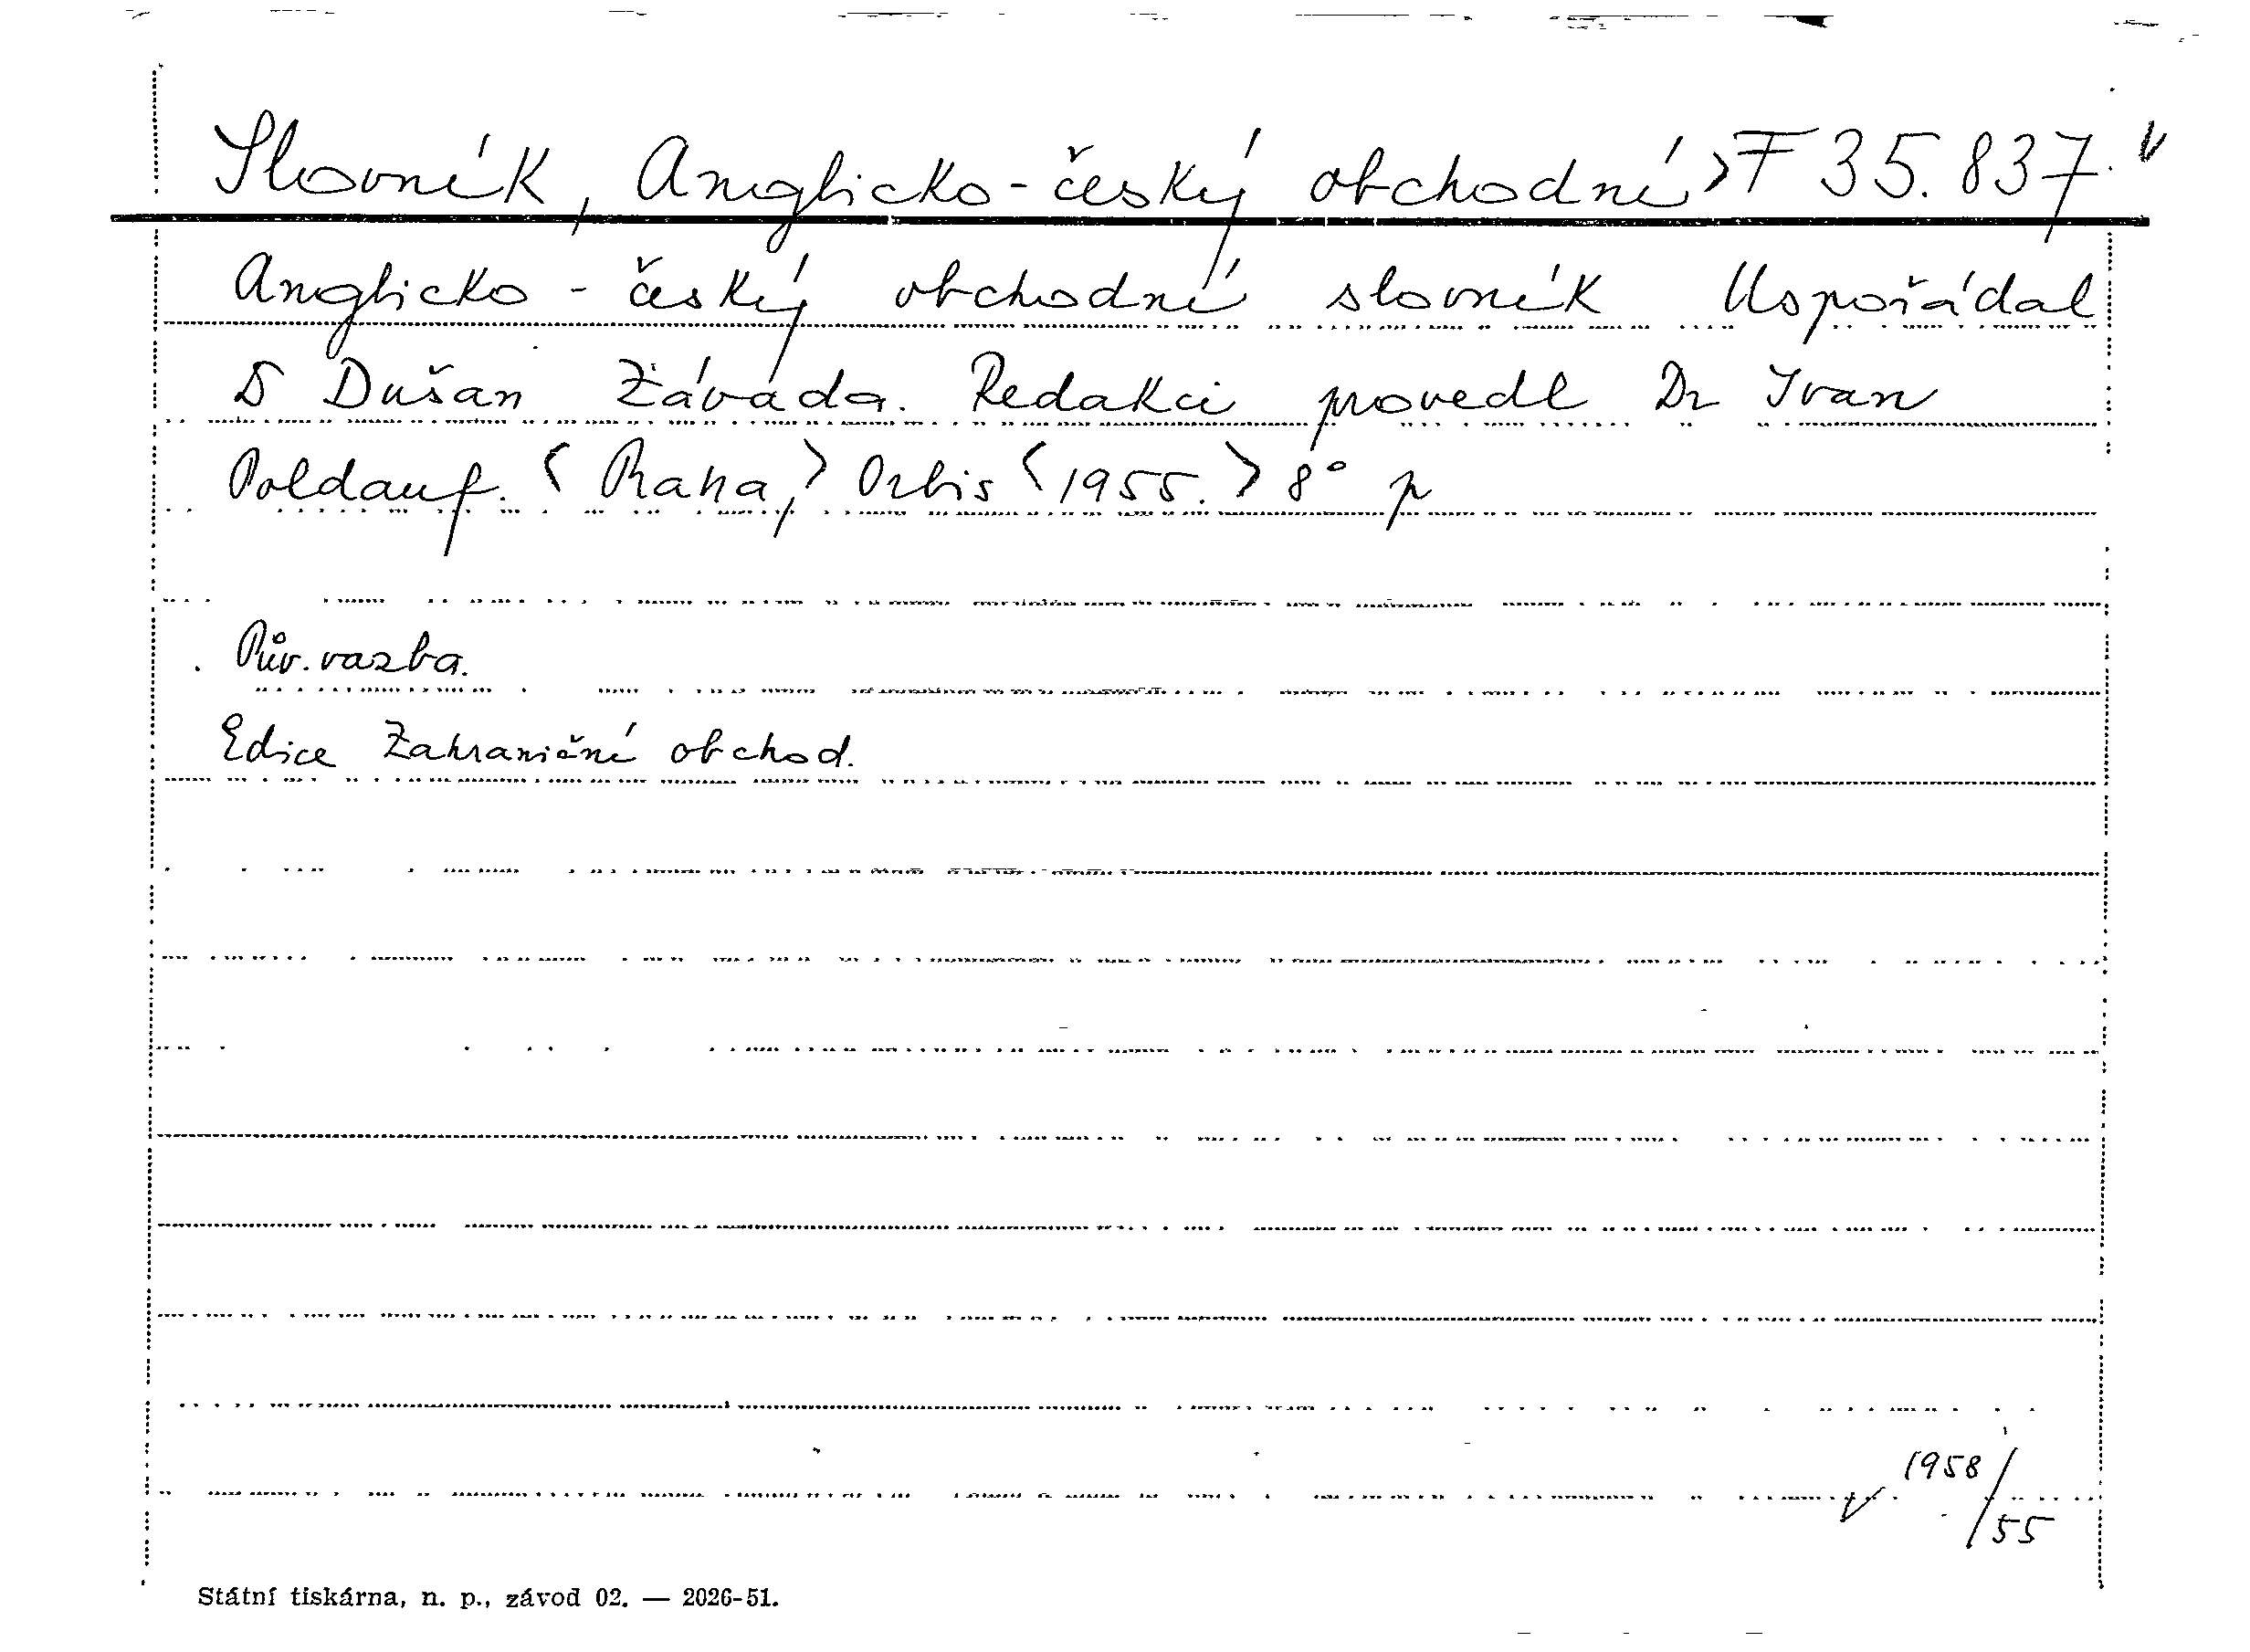 Slovník, Anglicko-český obchodní > F 35.837.
Anglicko - český obchodní slovník Uspořádal
D Dušan Závada. Redakci provedl Dr Ivan
Poldauf. < Praha, > Orbis < 1955. > 8° p
Pův. vazba.
Edice Zahraniční obchod.
1958/55
Státní tiskárna, n. p., závod 02. — 2026-51.